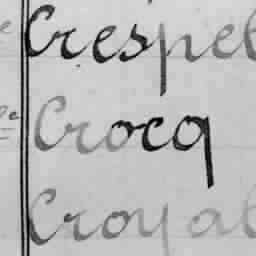 Crespel
Crocq
Croyal